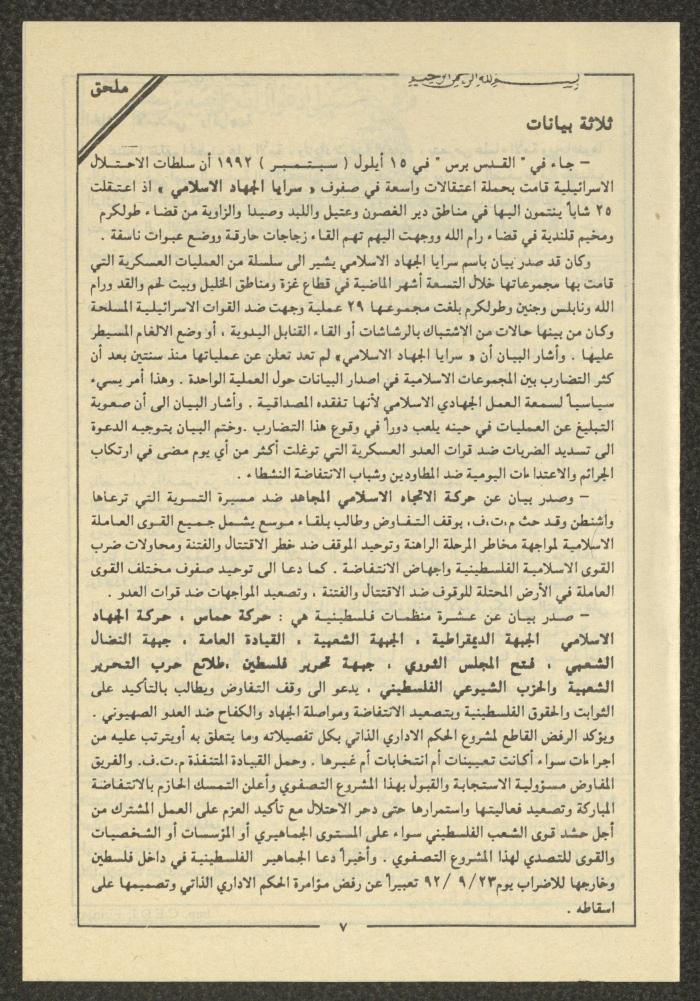 بسم الله الرحمن الرحيم
ملحق
ثلاثة بيانات
– جاء في " القدس برس " في ١٥ أيلول ( سبتمبر ) ١٩٩٢ أن سلطات الاحتلال
الاسرائيلية قامت بحملة اعتقالات واسعة في صفوف « سرايا الجهاد الاسلامي » اذ اعتقلت
٢٥ شاباً ينتمون اليها في مناطق دير الغصون وعتيل واللبد وصيدا والزاوية من قضاء طولكرم
ومخيم قلندية في قضاء رام الله ووجهت اليهم تهم القاء زجاجات حارقة ووضع عبوات ناسفة .
وكان قد صدر بيان باسم سرايا الجهاد الاسلامي يشير الى سلسلة من العمليات العسكرية التي
قامت بها مجموعاتها خلال التسعة أشهر الماضية في قطاع غزة ومناطق الخليل وبيت لحم والقد ورام
الله ونابلس وجنين وطولكرم بلغت مجموعها ٢٩ عملية وجهت ضد القوات الاسرائيلية المسلحة
وكان من بينها حالات من الاشتباك بالرشاشات أو القاء القنابل اليدوية ، أو وضع الالغام المسيطر
عليها . وأشار البيان أن « سرايا الجهاد الاسلامي» لم تعد تعلن عن عملياتها منذ سنتين بعد أن
كثر التضارب بين المجموعات الاسلامية في اصدار البيانات حول العملية الواحدة . وهذا أمر يسيء
سياسياً لسمعة العمل الجهادي الاسلامي لأنها تفقده المصداقية . وأشار البيان الى أن صعوبة
التبليغ عن العمليات في حينه يلعب دوراً في وقوع هذا التضارب .وختم البيان بتوجيه الدعوة
الى تسديد الضربات ضد قوات العدو العسكرية التي توغلت أكثر من أي يوم مضى في ارتكاب
الجرائم والاعتداءات اليومية ضد المطاودين وشباب الانتفاضة النشطاء .
– وصدر بيان عن حركة الاتجاه الاسلامي المجاهد ضد مسيرة التسوية التي ترعاها
واشنطن وقد حث م.ت.ف. بوقف التفاوض وطالب بلقاء موسع يشمل جميع القوى العاملة
الاسلامية لمواجهة مخاطر المرحلة الراهنة وتوحيد الموقف ضد خطر الاقتتال والفتنة ومحاولات ضرب
القوى الاسلامية الفلسطينية واجهاض الانتفاضة . كما دعا الى توحيد صفوف مختلف القوى
العاملة في الأرض المحتلة للوقوف ضد الاقتتال والفتنة ، وتصعيد المواجهات ضد قوات العدو .
– صدر بيان عن عشرة منظمات فلسطينية هي : حركة حماس ، حركة الجهاد
الاسلامي الجبهة الديمقراطية ، الجبهة الشعبية ، القيادة العامة ، جبهة النضال
الشعبي ، فتح المجلس الثوري ، جبهة تحرير فلسطين ،طلائع حرب التحرير
الشعبية والحزب الشيوعي الفلسطيني ، يدعو الى وقف التفاوض ويطالب بالتأكيد على
الثوابت والحقوق الفلسطينية وبتصعيد الانتفاضة ومواصلة الجهاد والكفاح ضد العدو الصهيوني .
ويؤكد الرفض القاطع لمشروع الحكم الاداري الذاتي بكل تفصيلاته وما يتعلق به أويترتب عليه من
اجراءات سواء أكانت تعيينات أم انتخابات أم غيرها . وحمل القيادة المتنفذة م.ت.ف. والفريق
المفاوض مسؤولية الاستجابة والقبول بهذا المشروع التصفوي وأعلن التمسك الحازم بالانتفاضة
المباركة وتصعيد فعاليتها واستمرارها حتى دحر الاحتلال مع تأكيد العزم على العمل المشترك من
أجل حشد قوى الشعب الفلسطيني سواء على المستوى الجماهيري أو المؤسسات أو الشخصيات
والقوى للتصدي لهذا المشروع التصفوي . وأخيراً دعا الجماهير الفلسطينية في داخل فلسطين
وخارجها للاضراب يوم٢٣/ ٩ /٩٢ تعبيراً عن رفض مؤامرة الحكم الاداري الذاتي وتصميمها على
اسقاطه .
٧